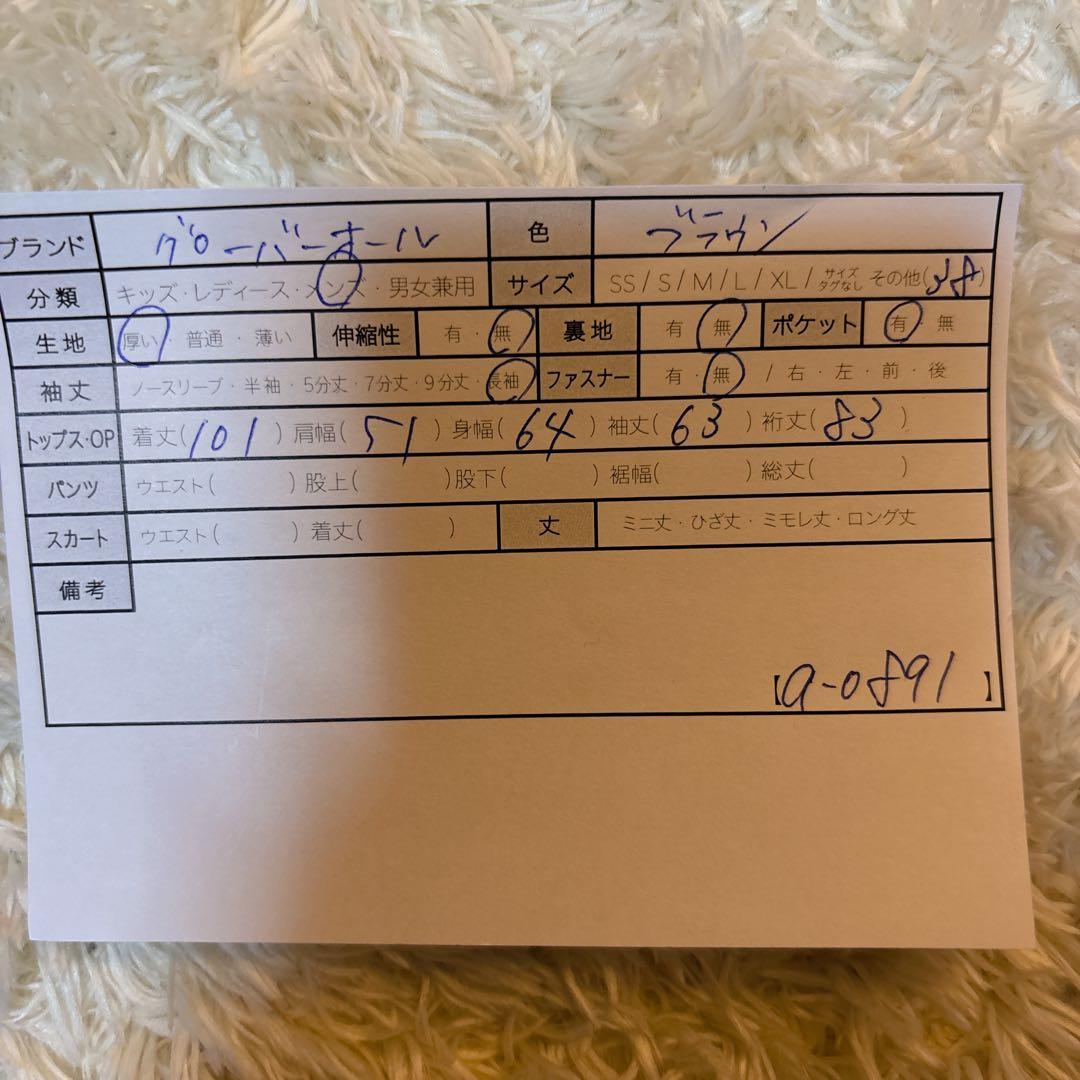 ブランド グローバーオール 色 ブラウン
分類 キッズ・レディース・メンズ・男女兼用 サイズ SS / S / M / L / XL / サイズタグなし その他(38)
生地 厚い・普通・薄い 伸縮性 有・無 裏地 有・無 ポケット 有・無
袖丈 ノースリーブ・半袖・5分丈・7分丈・9分丈・長袖 ファスナー 有・無 / 右・左・前・後
トップス・OP 着丈(101) 肩幅(51) 身幅(64) 袖丈(63) 裄丈(83)
パンツ ウエスト( ) 股上( ) 股下( ) 裾幅( ) 総丈( )
スカート ウエスト( ) 着丈( ) 丈 ミニ丈・ひざ丈・ミモレ丈・ロング丈
備考
【a-0891】